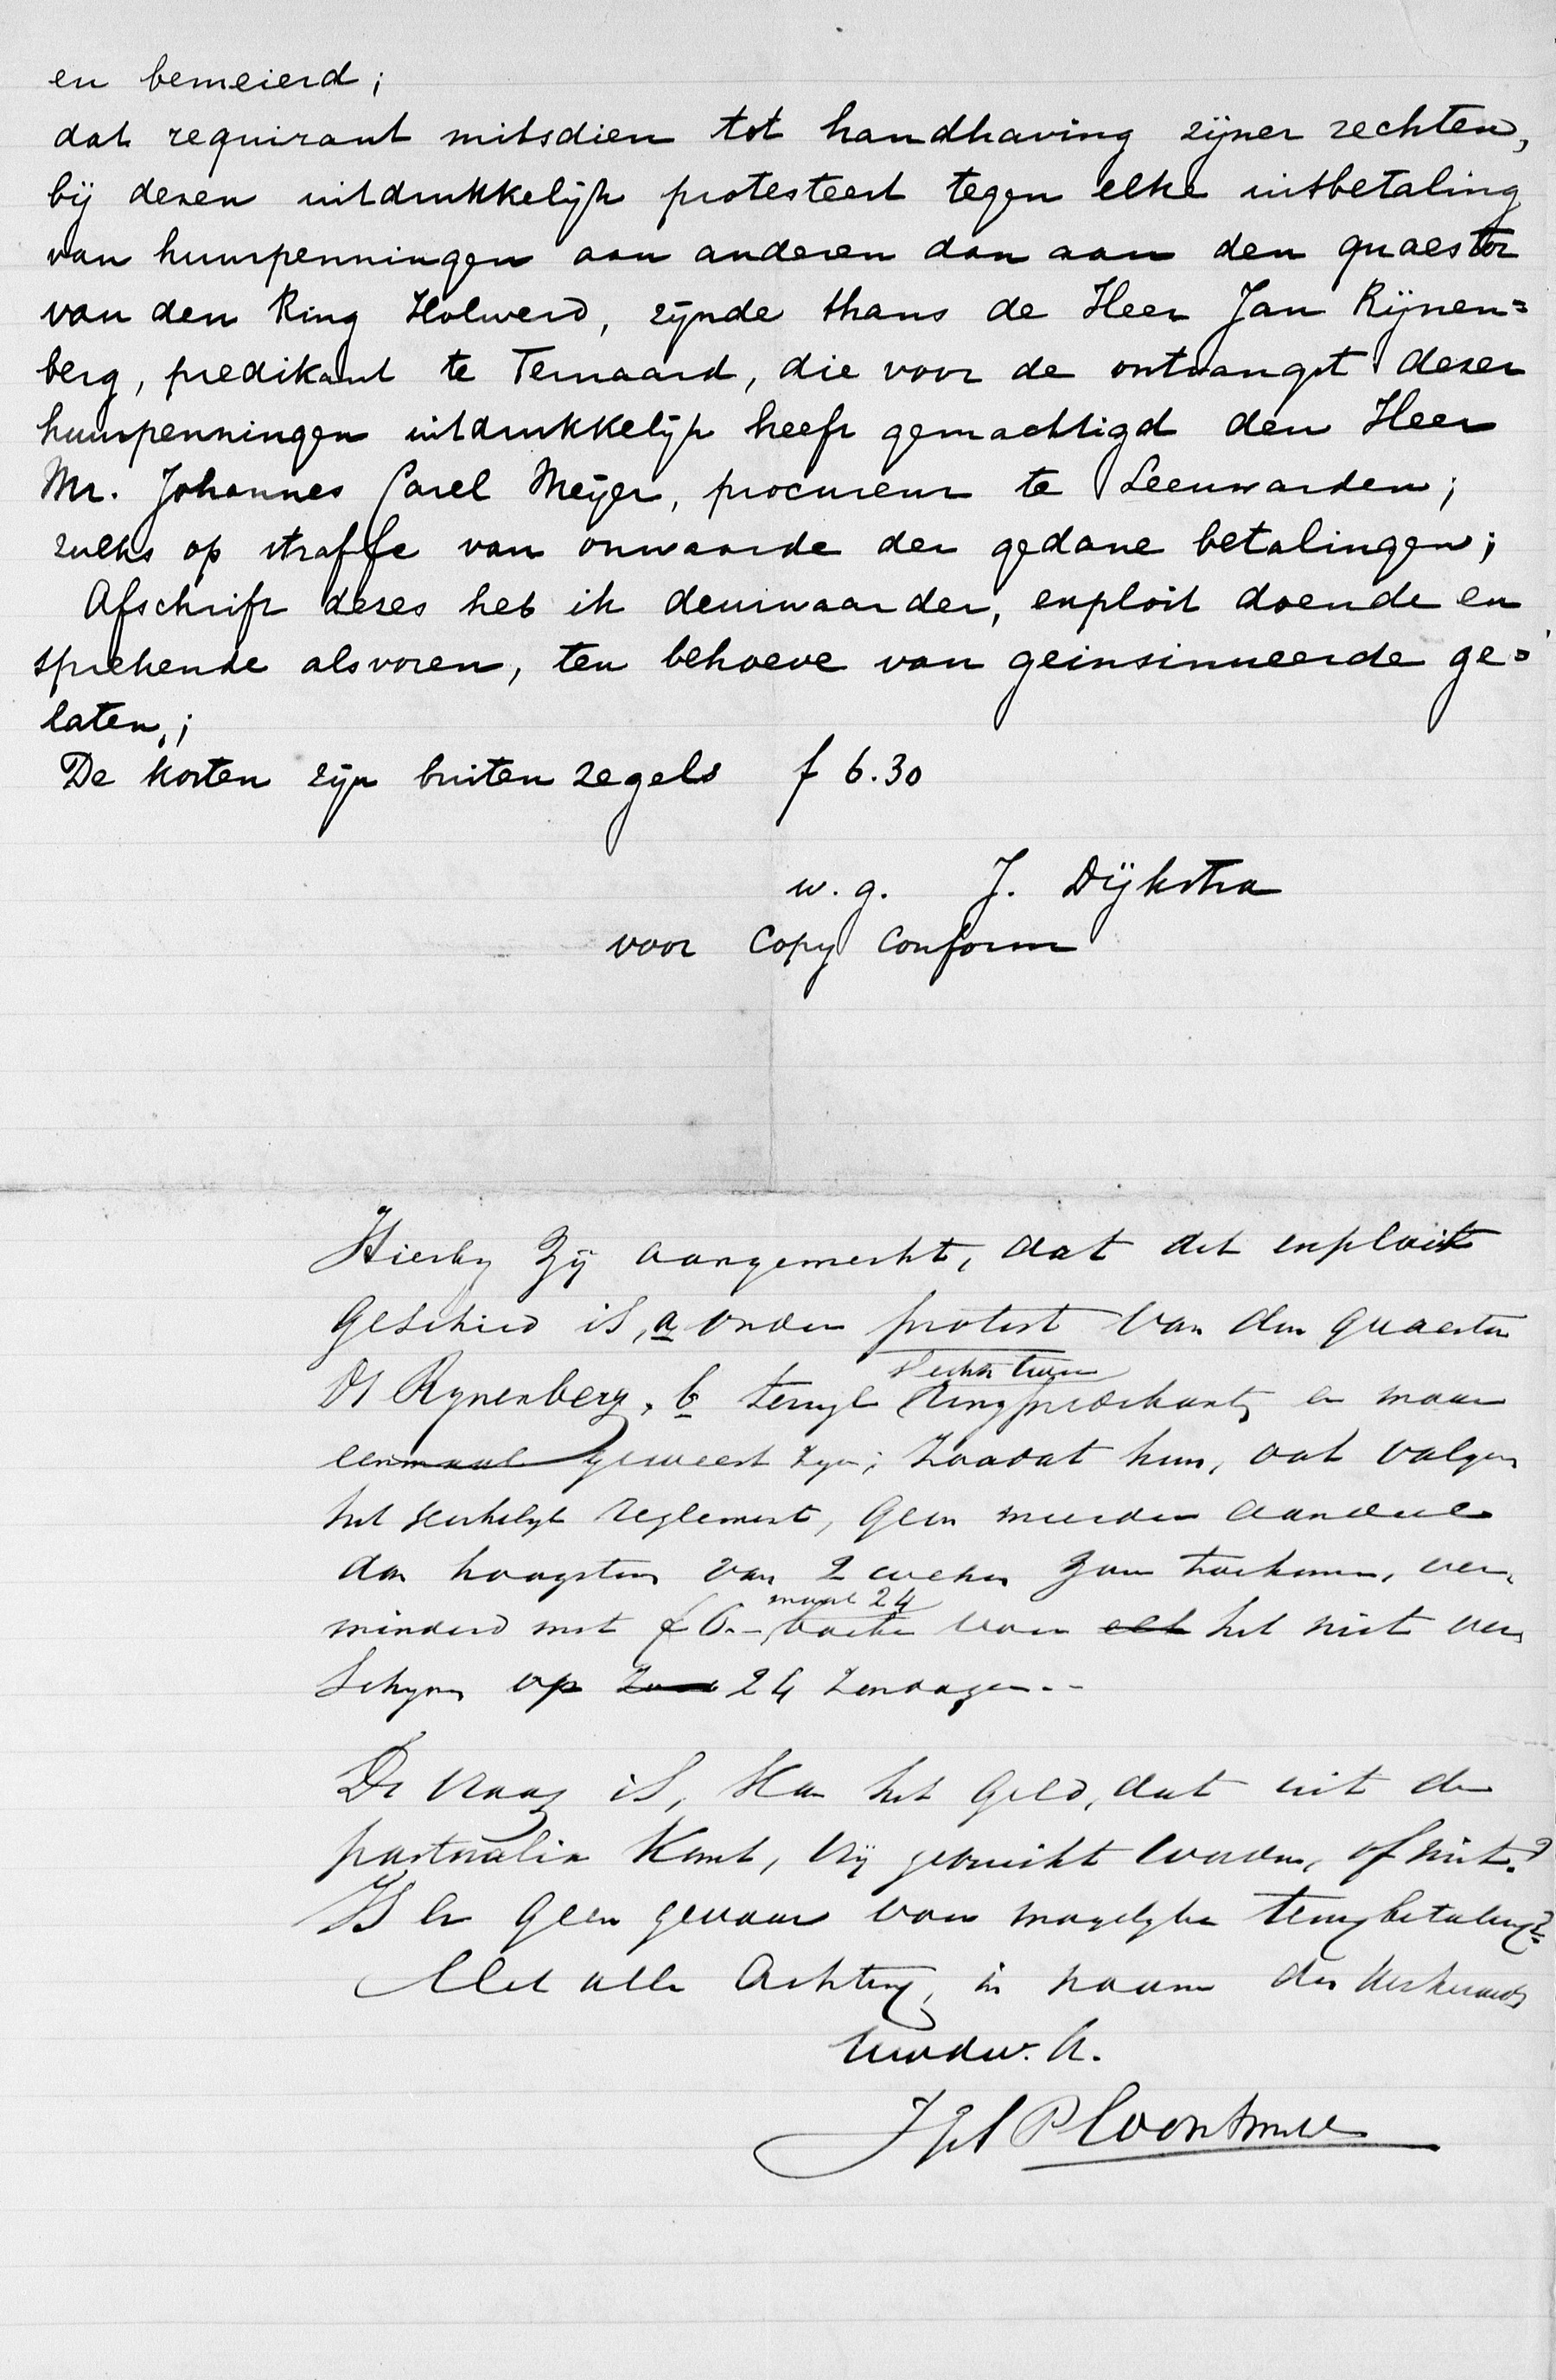 en bemeierd;
dat requirant mitsdien tot handhaving zijner rechten,
bij dezen uitdrukkelijk protesteert tegen elke uitbetaling
van huurpenningen aan anderen dan aan den quaestor
van den Ring Holwerd, zijnde thans de Heer Jan Rijnen=
berg, predikant te Ternaard, die voor de ontvangst dezer
huurpenningen uitdrukkelijk heeft gemachtigd den Heer
Mr. Johannes Carel Meijer, procureur te Leeuwarden;
zulks op straffe van onwaarde der gedane betalingen;
Afschrift dezes heb ik deurwaarder, exploit doende en
sprekende alsvoren, ten behoeve van geinsinueerde ge=
laten,;
De kosten zijn buiten zegels f 6.30
w. g. J. Dijkstra
voor Copy Conform
Hierby zij aangemerkt, dat dit exploit
geschied is, a onder protest van den quaestor
Ds Rynenberg, b terwyl slechts twee Ringpredikanten er maar
eenmaal geweest zyn; zoodat hun, ook volgens
het Kerkelyk reglement, geen meerder aandeel
dan hoogstens van 2 weken zou toekomen, ver-
minderd met f 6.- maal 24 boete voor het niet ver
schynen op 24 Zondagen.-
De vraag is, Kan het geld, dat uit de
pastoralie Komt, vrij gebruikt worden, of niet?
Is er geen gevaar voor mogelyke terugbetaling?
Met alle Achting, in naam der Kerkeraad
Uwdw. d.